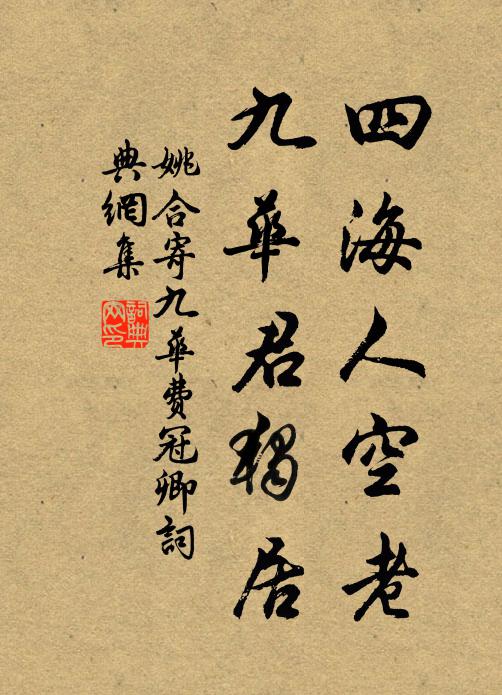 四海人空老
九華君獨居
姚合寄九華費冠卿詞
典網集
詞典网印